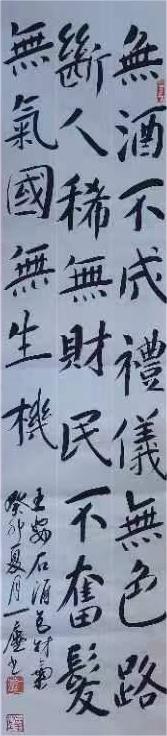 無酒不成禮儀無色路
斷人稀無財民不奮髮
無氣國無生機
王安石酒色財氣
癸卯夏月一